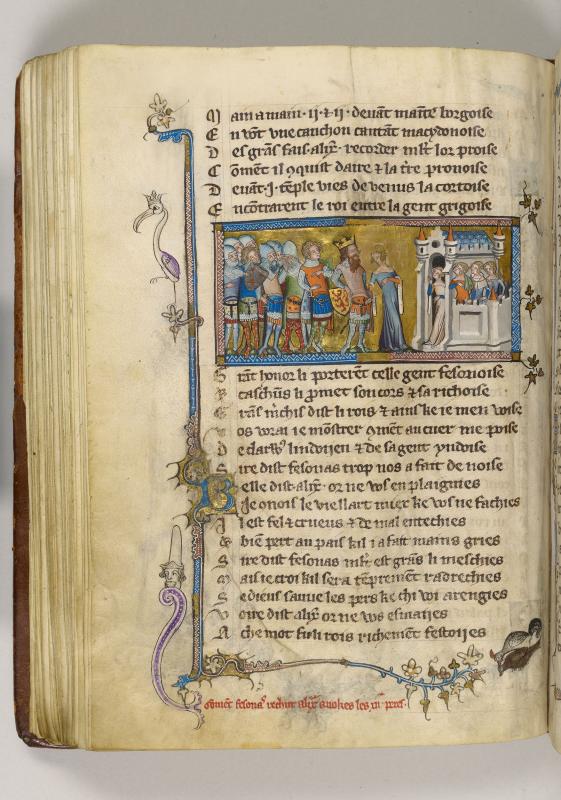 M ain a main · ij · ⁊ · ij · deuāt mainte borgoise
E n vōt vne cauchon cantāt macydonoise
D es grās fais alix̄ · recorder lor proise
C ōmēt il ꝯquist daire ⁊ la t̄re pronoise
D euāt · j · tēple vies de venus la cortoise
E ncōtrarent le roi entre la gent grigoise
G rāt honor li porterēt celle gent fesonoise
caschūs li ꝓmet son cors ⁊ sa richoise
dist li rois ⁊ ains ke ie men voise
vos vrai ie mōstrer ꝯmēt au cuer me poise
D e clarꝰ lindoijen ⁊ de sa gent yndoise
S ire dist fesonas trop nos a fait de noise
B elle dist alix̄ · or ne vos en plaignies
J e ꝯnois le viellart miex ke vos ne fachies
J l est fel ⁊ crueus ⁊ de mal entechies
bien pert au païs kil i a fait mains gries
S ire dist fesonas est grās li meschies
M ais ie croi kil sera tēprement radrechies
S e dieus sauue les pers ke chi voi arengies
V oire dist alix̄ or ne vos esmaijes
A che mot fu li rois richemēt festoijes
ꝯment fesonas rechut alix̄ auokes les xij · pers ·